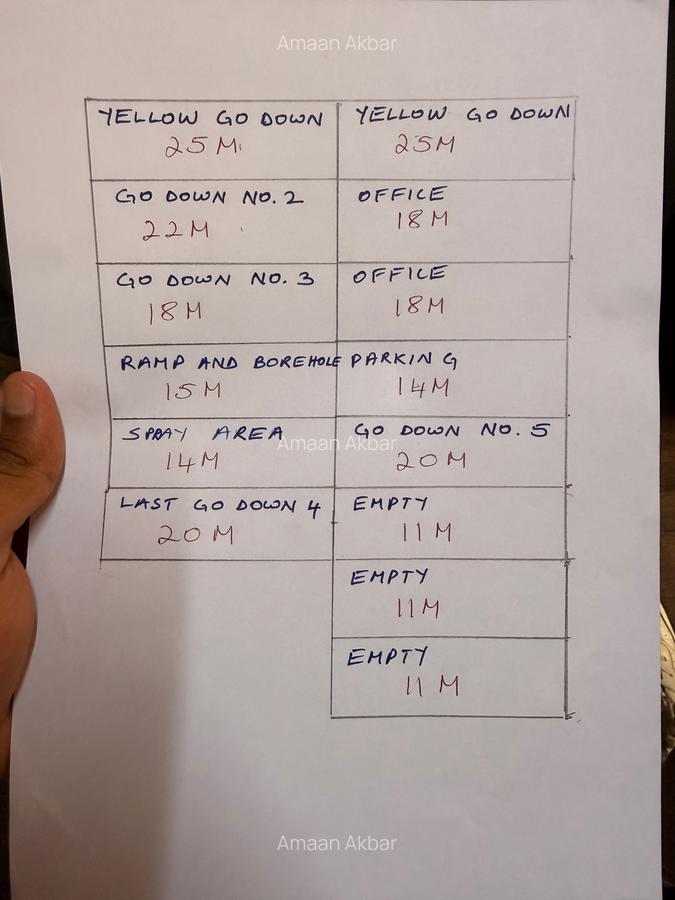 Amaan Akbar
YELLOW GO DOWN
25 M
YELLOW GO DOWN
25M
GO DOWN NO. 2
22 M
OFFICE
18 M
GO DOWN NO. 3
18 M
OFFICE
18M
RAMP AND BOREHOLE
15 M
PARKING
14M
SPRAY AREA
14M
GO DOWN NO. 5
20 M
Amaan Akbar
LAST GO DOWN 4
20 M
EMPTY
11 M
EMPTY
11 M
EMPTY
11 M
Amaan Akbar